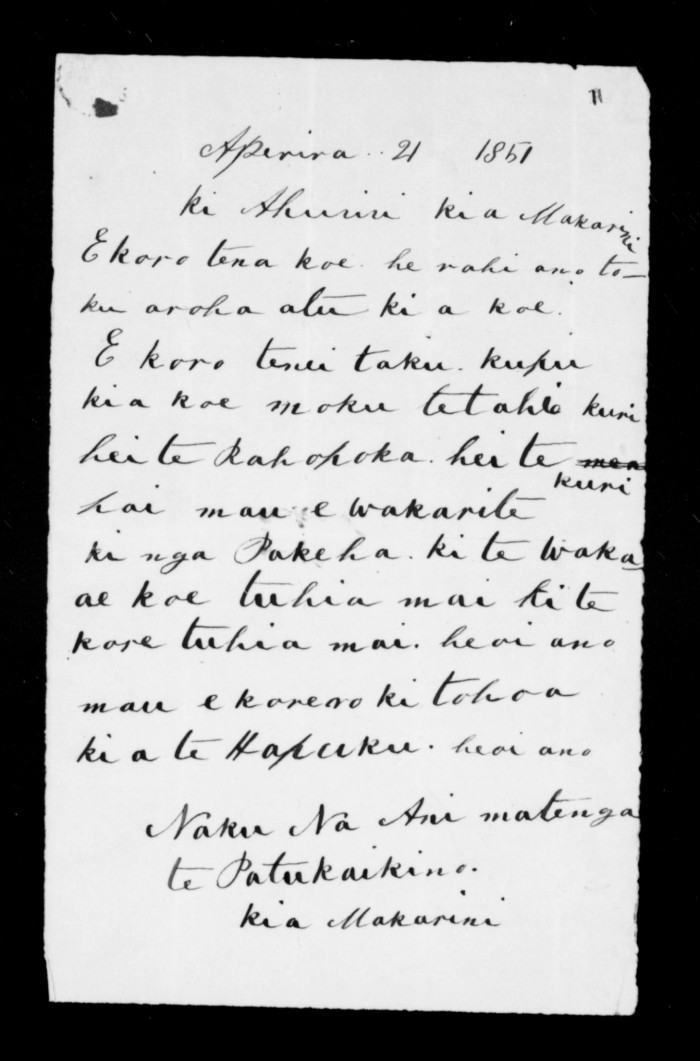 Aperira 21 1851
ki Ahuriri kia Makarini
E koro tena koe. he rahi ano to-
ku aroha atu ki a koe.
E koro tenei taku. kupu
kia koe moku tetahi kuri
hei te Rahopoka. hei te
kuri
hai mau e wakarite
ki nga Pakeha. ki te waka
ae koe tuhia mai ki te
kore tuhia mai. heoi ano
mau e korero ki tohoa
ki a te Hapuku. heoi ano
Naku Na Ani matenga
te Patukaikino.
kia Makarini